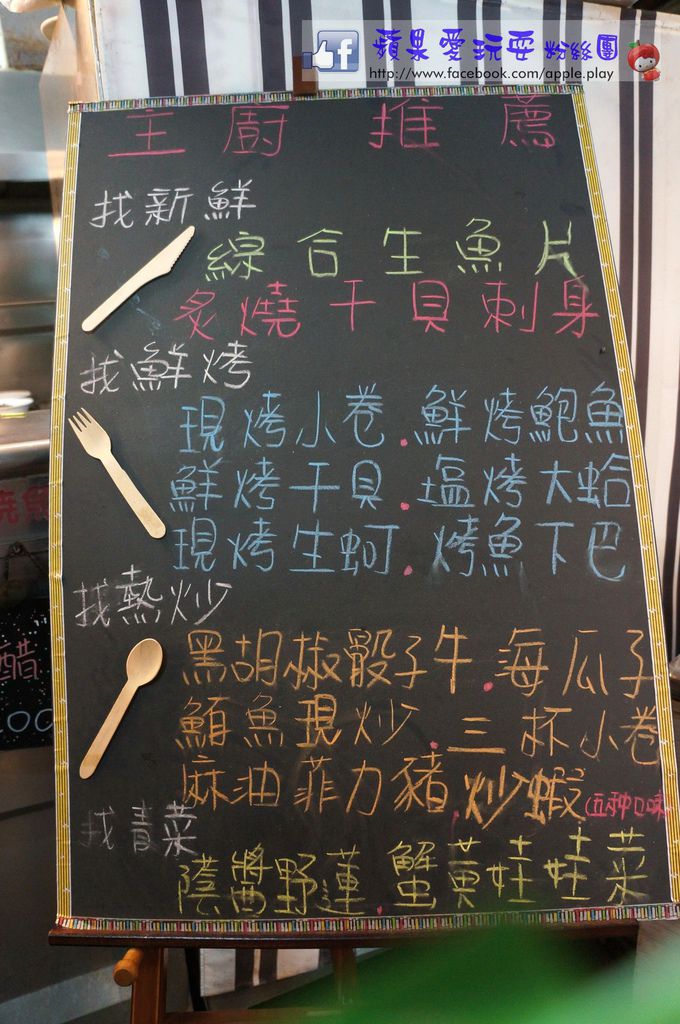 蘋果愛玩耍粉絲團
http://www.facebook.com/apple.play
主廚推薦
找新鮮
綜合生魚片
炙燒干貝刺身
找鮮烤
現烤小卷.鮮烤鮑魚
鮮烤干貝.塩烤大蛤
現烤生蚵.烤魚下巴
找熱炒
黑胡椒骰子牛.海瓜子
鮪魚現炒.三杯小卷
麻油菲力豬.炒蝦(五种口味
找青菜
蔭醬野蓮.蟹黃娃娃菜
醋